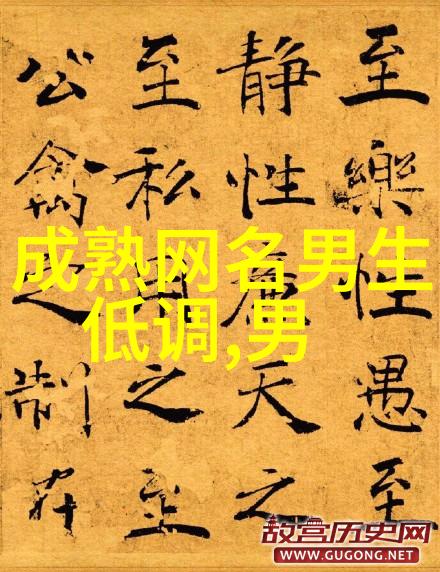 至樂性愚至
静性廉天之
至私用之至
公禽之制在
成熟网名男生
低调,男
故宫历史网
WWW.GUGONG.NET